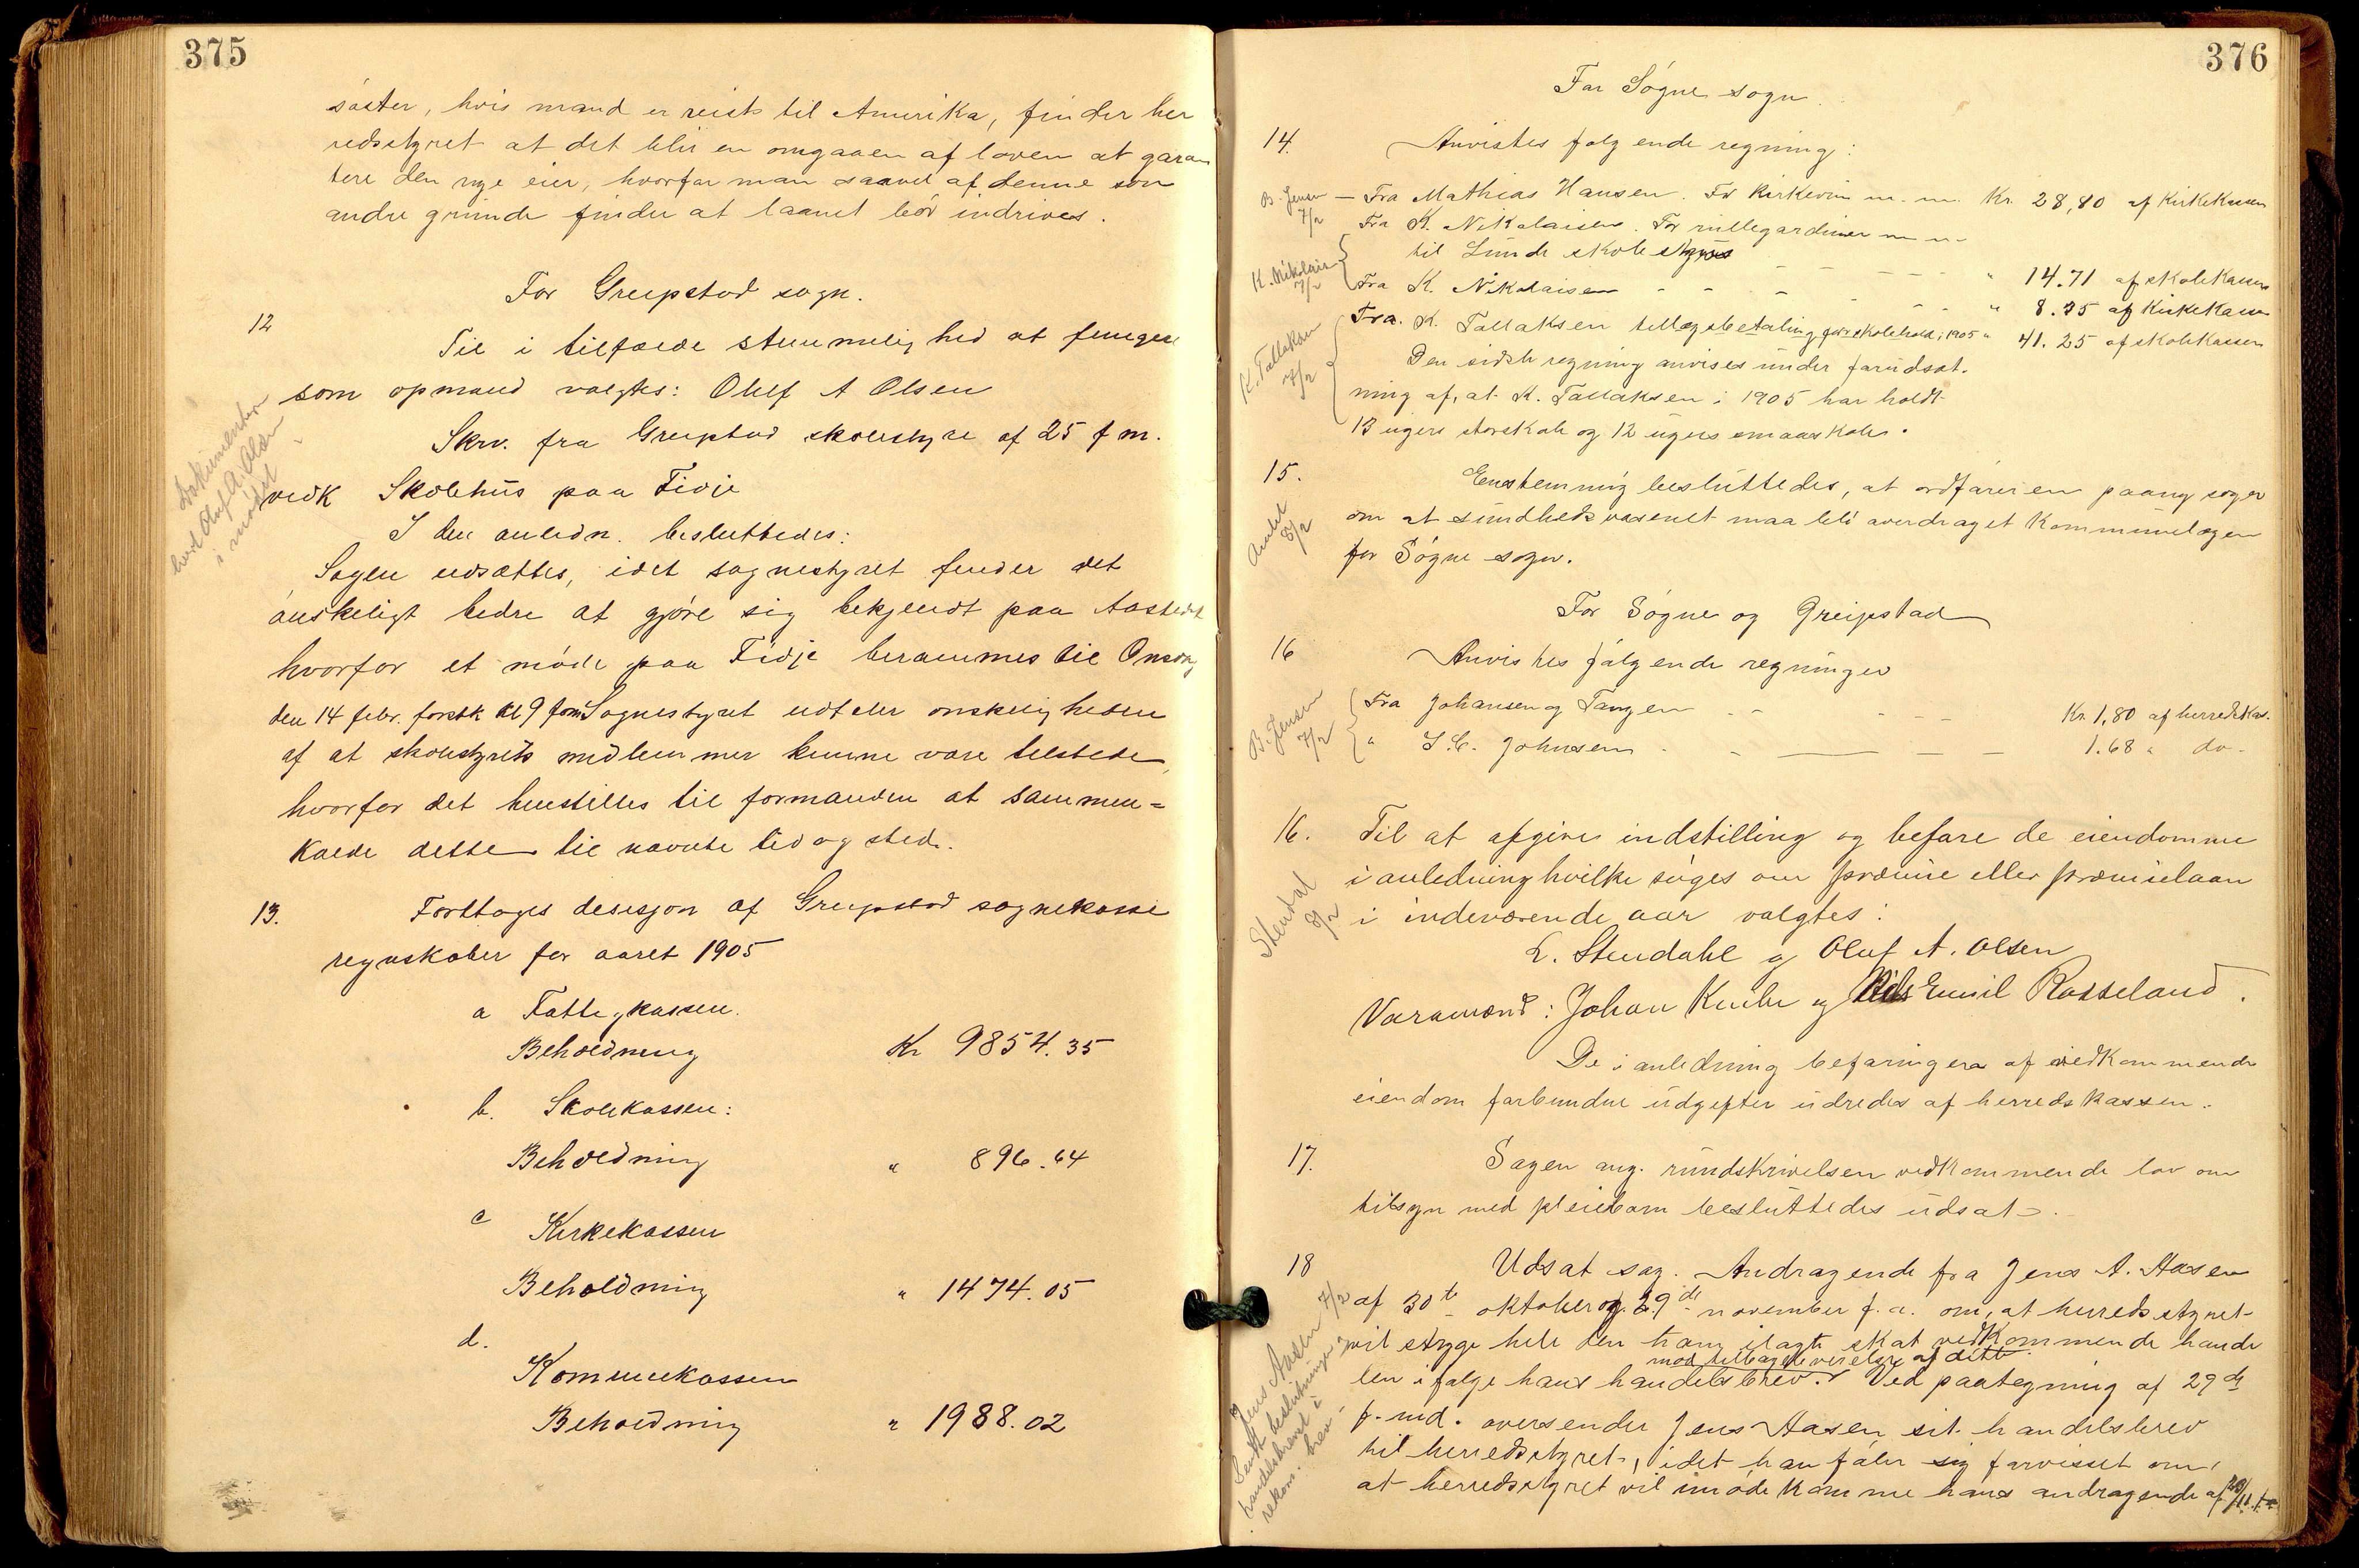 375
søster, hvis mand er reist til Amerika, finder her
redsstyret at det blir en omgaaen af loven at garan
tere den nye eier, hvorfor man saavel af denne som
andre grunde finder at laanet bør indrives.
For Greipstad sogn.
12
Til i tilfælde stemmelighed at fungere
som opmand valgtes: Oluf A Olsen
Skriv. fra Greipstad skolestyre af 25 f m.
vedk Skolehus paa Fidje
Dokumenterne
levt Oluf A. Olsen
i mødet
I den anledn. besluttedes:
Sagen udsættes, idet sognestyret finder det
ønskeligt bedre at gjøre sig bekjendt paa Aastedet
hvorfor et møde paa Fidje berammes til Onsdag
den 14 febr. førstk kl 9 form Sognestyret udtaler ønskeligheden
af at skolestyrets medlemmer kunne være tilstede,
hvorfor det henstilles til formanden at sammen=
kalde dette til nævnte tid og sted.
13.
Forttoges desisjon af Greipstad sognekasse
regnskaber for aaret 1905
a Fattigkassen.
Beholdning Kr 9854.35
b. Skolekassen:
Beholdning " 896.64
c Kirkekassen
Beholdning " 1474.05
d.
Kommunekassen
Beholdning " 1988.02
376
For Søgne sogn.
14. Anvistes følgende regning:
B. Jensen 7/2
– Fra Mathias Hansen. For kirkevin m.m. Kr. 28,80 af Kirkekassen
Fra K. Nikolaisen. For rullegardiner m m
til Lunde skole " 14.71 af skolekassen
K. Nikolais 7/2
Fra K. Nikolaisen " 8.25 af Kirkekassen
Fra. K. Tallaksen tillægsbetaling for skolehold i 1905 " 41.25 af skolekassen
K. Tallaksen 7/2
Den sidste regning anvises under forudsæt-
ning af, at K. Tallaksen i 1905 har holdt
13 ugers storskole og 12 ugers smaaskole.
15. Enstemmig besluttedes, at ordføreren paany søger
Andet 8/2
om at sundhedsvæsenet maa bli overdraget Kommunelægen
for Søgne sogn.
For Søgne og Greipstad
16 Anvistes følgende regninger
B. Jensen 7/2
Fra Johansen og Tangen Kr. 1,80 af herredskas.
" I. C. Johnsen 1.68 " do.
16. Til at afgive indstilling og befare de eiendomme
i anledning hvilke søges om præmie eller præmielaan
Stendal 8/2
i indeværende aar valgtes:
L. Stendahl og Oluf A. Olsen
Varamænd: Johan Kuibe og Emil Rosseland.
De i anledning befaringen af vedkommende
eiendom forbundne udgifter udredes af herredskassen.
17. Sagen ang. rundskrivelsen vedkommende lov om
tilsyn med pleiebørn besluttedes udsat.
18 Udsat sag. Andragende fra Jens A. Aasen
af 30te oktober og 29de november f.a. om, at herredsstyret
vil stryge hele den ham ilagte skat vedkommende hande
len ifølge hans handelsbrev. mod tilbageleverelse af dette Ved paategning af 29de
f. md. oversender Jens Aasen sit handelsbrev
til herredsstyret, idet han føler sig forvisset om,
at herredsstyret vil imødekomme hans andragende af 29/11 f.a.
Jens Aasen 7/2
Sendt beslutninger og
handelsbrevet i
rekom. brev